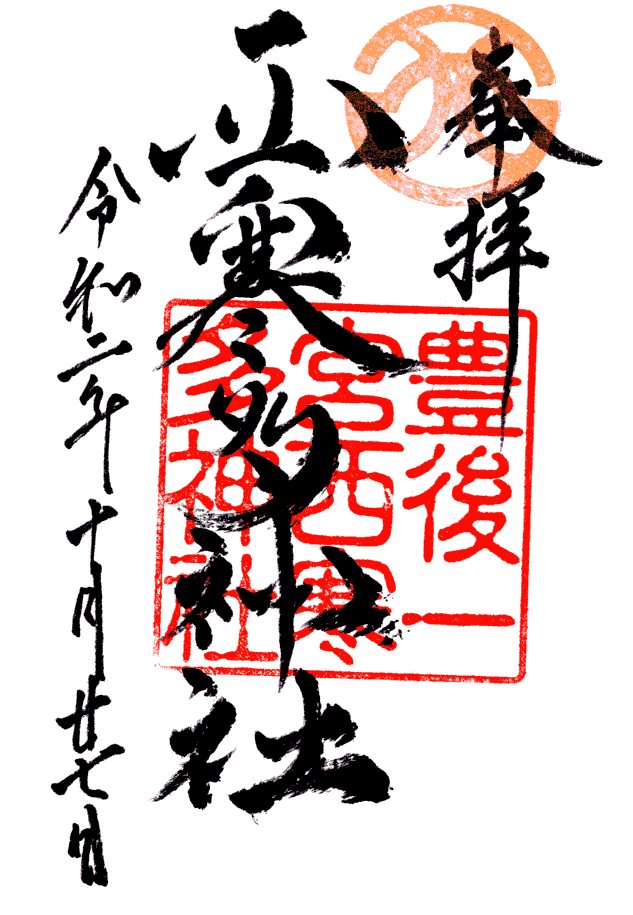 奉拝
西寒多神社
豊後一
宮西寒
多神社
令和二年十月廿七日